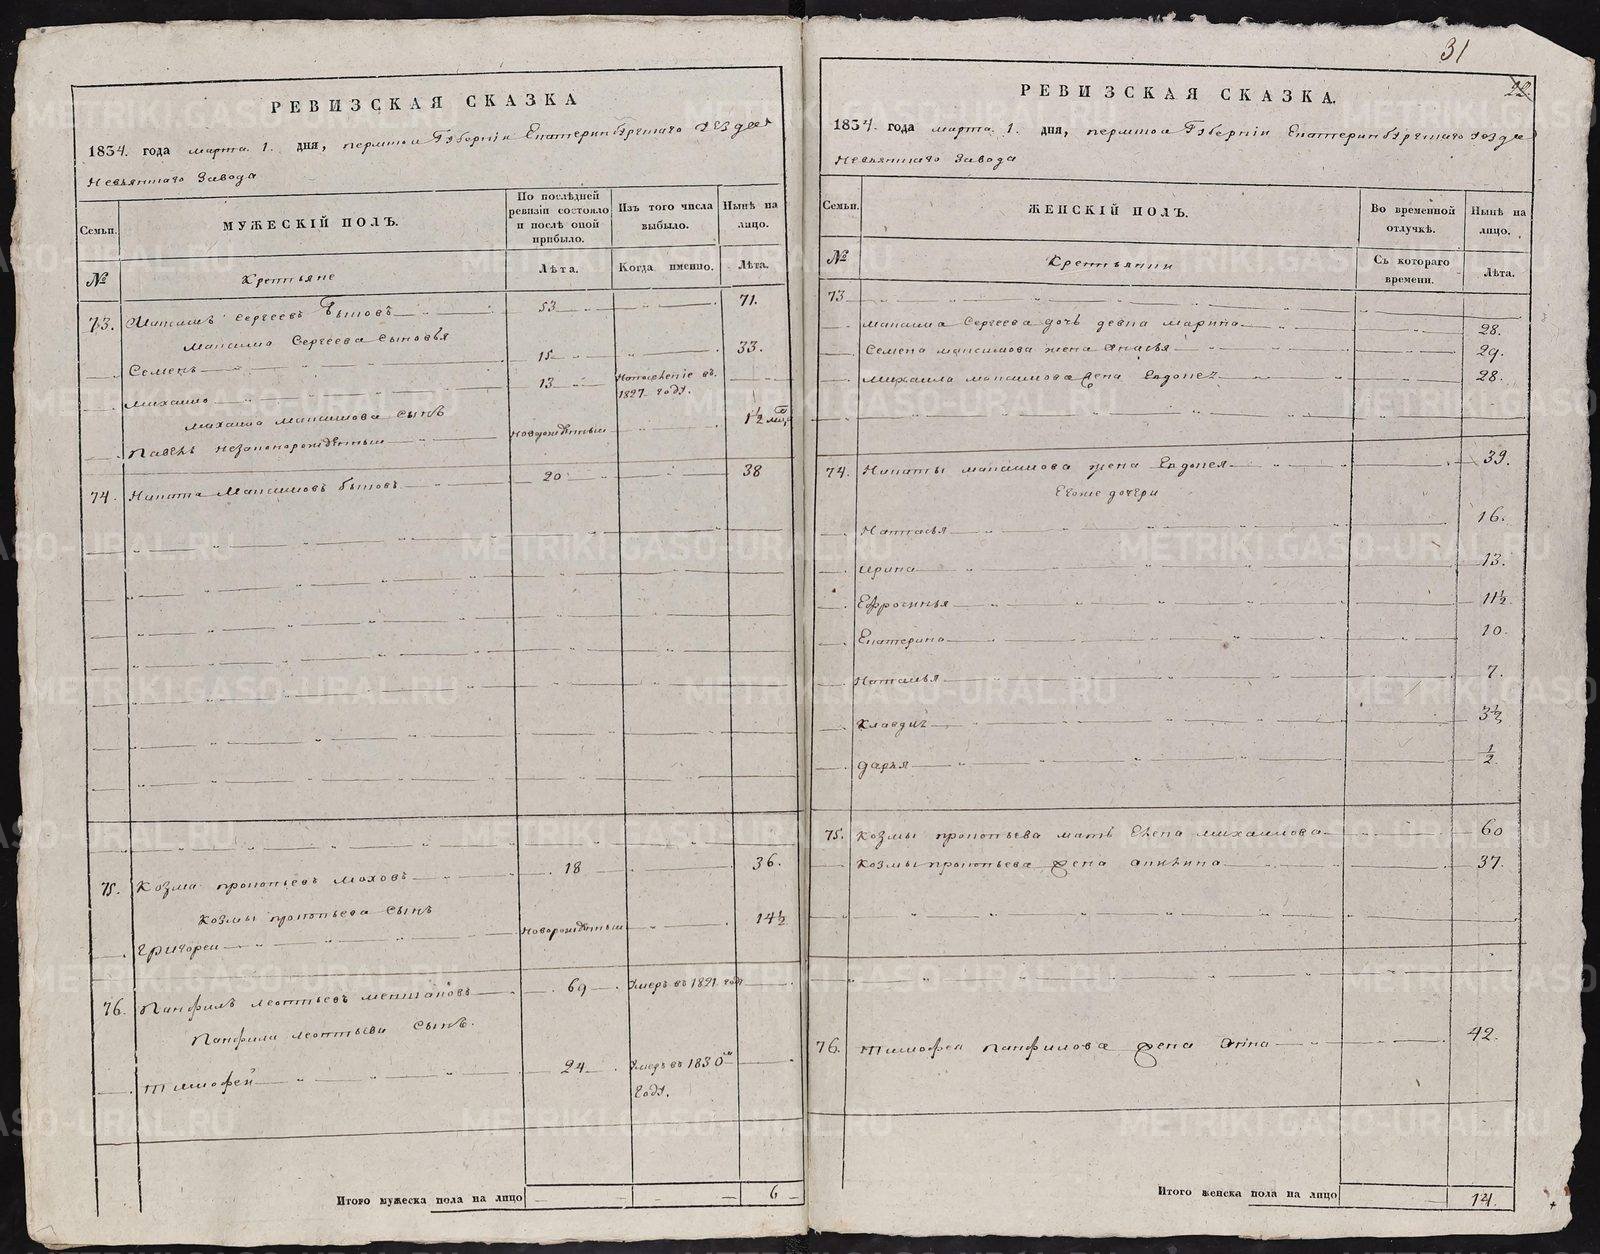 РЕВИЗСКАЯ СКАЗКА
1834. года марта. 1. дня, пермской Губернiи Екатеринбургскаго уезда
Невьянскаго Завода
Семьи.
МУЖЕСКIЙ ПОЛЪ.
По послѣдней ревизiи состояло и послѣ оной прибыло.
Изъ того числа выбыло.
Нынѣ на лицо.
№
Крестьяне
Лѣта.
Когда именно.
Лѣта.
73. Максимъ Сергеевъ Бытовъ 53 71.
Максима Сергеева Сыновья
Семенъ 15 33.
Михаило 13 1827 году.
Михаила Максимова Сынъ
Павелъ незаконорожденный Новорожденный 1½ мц
74. Никита Максимовъ бытовъ 20 38
75. Козма прокопьевъ моховъ 18 36.
Козмы прокопьева Сынъ
Григореи Новорожденный 14½
76. Панфилъ леонтьевъ меншаковъ 69 Умеръ въ 1821 году
Панфила леонтьева Сынъ.
Тимофей 24 Умеръ въ 1830м
Году.
Итого мужеска пола на лицо 6
31
22.
РЕВИЗСКАЯ СКАЗКА.
1834. года марта. 1. дня, пермской Губернiи Екатеринбургскаго уезда
Невьянскаго Завода
Семьи.
ЖЕНСКIЙ ПОЛЪ.
Во временной отлучкѣ.
Нынѣ на лицо.
№
Крестьянки
Съ котораго времени.
Лѣта.
73
Максима Сергеева дочь девка марина 28.
Семена максимова жена 29.
Михаила максимова жена Евдокея 28.
74. Никиты максимова жена Евдокея 39.
Егоже дочери
Настасья 16.
Ирина 13.
Ефросинья 11½
Екатерина 10.
Наталья 7.
Клавдия 3½
Дарья ½
75. Козмы прокопьева мать Елена михаилова 60
Козмы прокопьева жена акилина 37.
76. Тимофея Панфилова жена Анна 42.
Итого женска пола на лицо 14.
METRIKI.GASO-URAL.RU